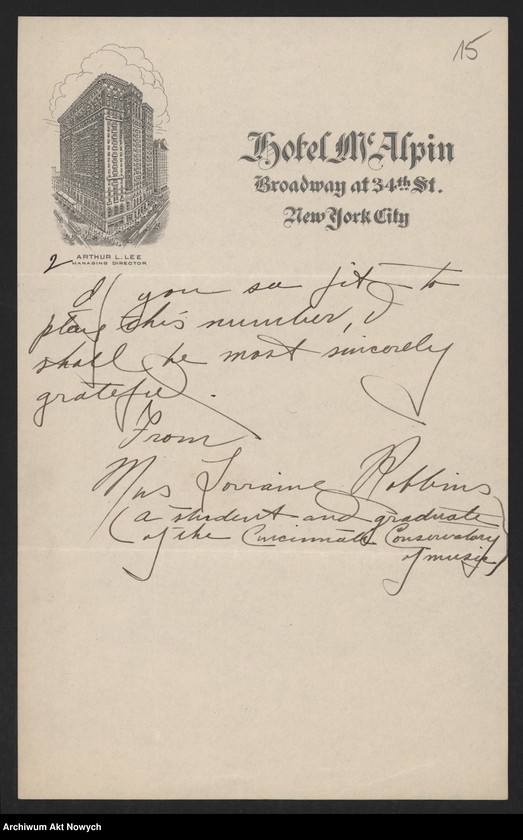 15
Hotel McAlpin
Broadway at 34th St.
New York City
ARTHUR L. LEE
MANAGING DIRECTOR
2
If you see fit to
play this number, I
shall be most sincerely
grateful.
From
Mrs Lorraine Robbins
(a student and graduate
of the Cincinnati Conservatory
of music)
Archiwum Akt Nowych